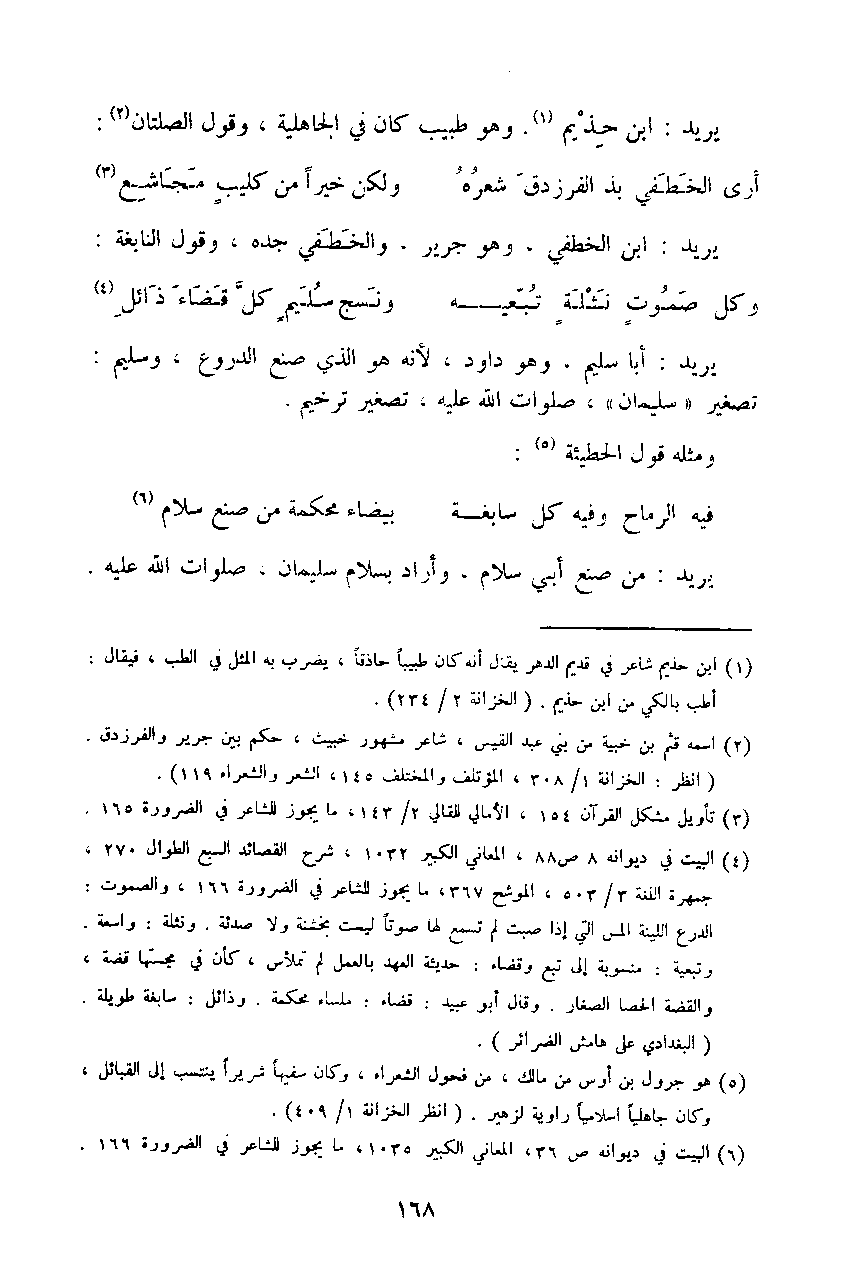 يريد : ابن حِذْيم (١) . وهو طبيب كان في الجاهلية ، وقول الصلتان(٢) :
أرى الخَطَفي بذ الفرزدقَ شعرُهُ    ولكن خيراً من كليبٍ مَجَاشِع(٣)
يريد : ابن الخطفي . وهو جرير . والخَطَفي جده ، وقول النابغة :
وكل صَمُوتٍ نَثْلَةٍ تُبّعيـــه    ونَسج سُلَيمٍ كلَّ قَضَاءَ ذَائلِ (٤)
يريد : أبا سليم . وهو داود ، لأنه هو الذي صنع الدروع ، وسليم :
تصغير « سليمان » ، صلوات الله عليه ، تصغير ترخيم .
ومثله قول الحطيئة (٥) :
فيه الرماح وفيه كل سابغـة    بيضاء محكمة من صنع سلام (٦)
يريد : من صنع أبي سلام . وأراد بسلام سليمان ، صلوات الله عليه .
(١) ابن حذيم شاعر في قديم الدهر يقال أنه كان طبيباً حاذقاً ، يضرب به المثل في الطب ، فيقال :
أطب بالكي من ابن حذيم . ( الخزانة ٢ / ٢٣٤ ) .
(٢) اسمه قثم بن خبية من بني عبد القيس ، شاعر مشهور خبيث ، حكم بين جرير والفرزدق .
( انظر : الخزانة ١/ ٣٠٨ ، المؤتلف والمختلف ١٤٥ ، الشعر والشعراء ١١٩ ) .
(٣) تأويل مشكل القرآن ١٥٤ ، الأمالي للقالي ٢/ ١٤٣ ، ما يجوز للشاعر في الضرورة ١٦٥ .
(٤) البيت في ديوانه ٨ ص٨٨ ، المعاني الكبير ١٠٣٢ ، شرح القصائد السبع الطوال ٢٧٠ ،
جمهرة اللغة ٣/ ٥٠٣ ، الموشح ٣٦٧ ، ما يجوز للشاعر في الضرورة ١٦٦ ، والصموت :
الدرع اللينة المس التي إذا صبت لم تسمع لها صوتاً ليست بخشنة ولا صدئة . ونثلة : واسعة .
وتبعية : منسوبة إلى تبع وقضاء : حديثة العهد بالعمل لم تملأس ، كأن في مجستها قضة ،
والقضة الحصا الصغار . وقال أبو عبيد : قضاء : ملساء محكمة . وذائل : سابغة طويلة .
( البغدادي على هامش الضرائر ) .
(٥) هو جرول بن أوس من مالك ، من فحول الشعراء ، وكان سفيهاً شريراً ينتسب إلى القبائل ،
وكان جاهلياً اسلامياً راوية لزهير . ( انظر الخزانة ١/ ٤٠٩ ) .
(٦) البيت في ديوانه ص ٣٦ ، المعاني الكبير ١٠٣٥ ، ما يجوز للشاعر في الضرورة ١٦٦ .
١٦٨